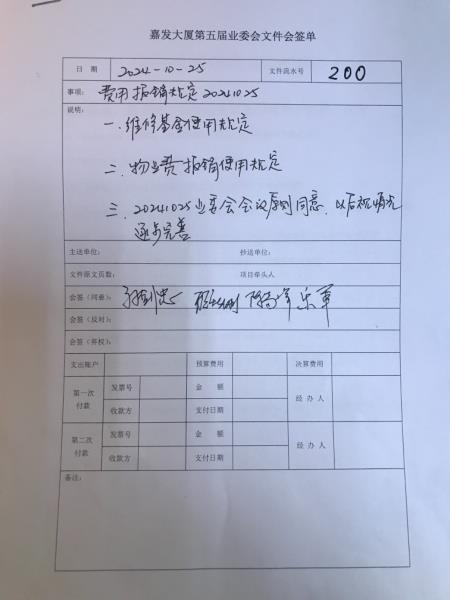 嘉发大厦第五届业委会文件会签单
日 期 2024-10-25 文件流水号 200
事项: 费用报销规定20241025
说明:
一、维修基金使用规定
二、物业费报销使用规定
三、20241025业委会会议原则同意,以后视情况
逐步完善
主送单位: 抄送单位:
文件原文页数: 项目牵头人
会签(同意):
会签(反对):
会签(弃权):
支出账户 预算费用 决算费用
第一次付款 发票号 金 额 经 办 人
收款方 支付日期
第二次付款 发票号 金 额 经 办 人
收款方 支付日期
备注: